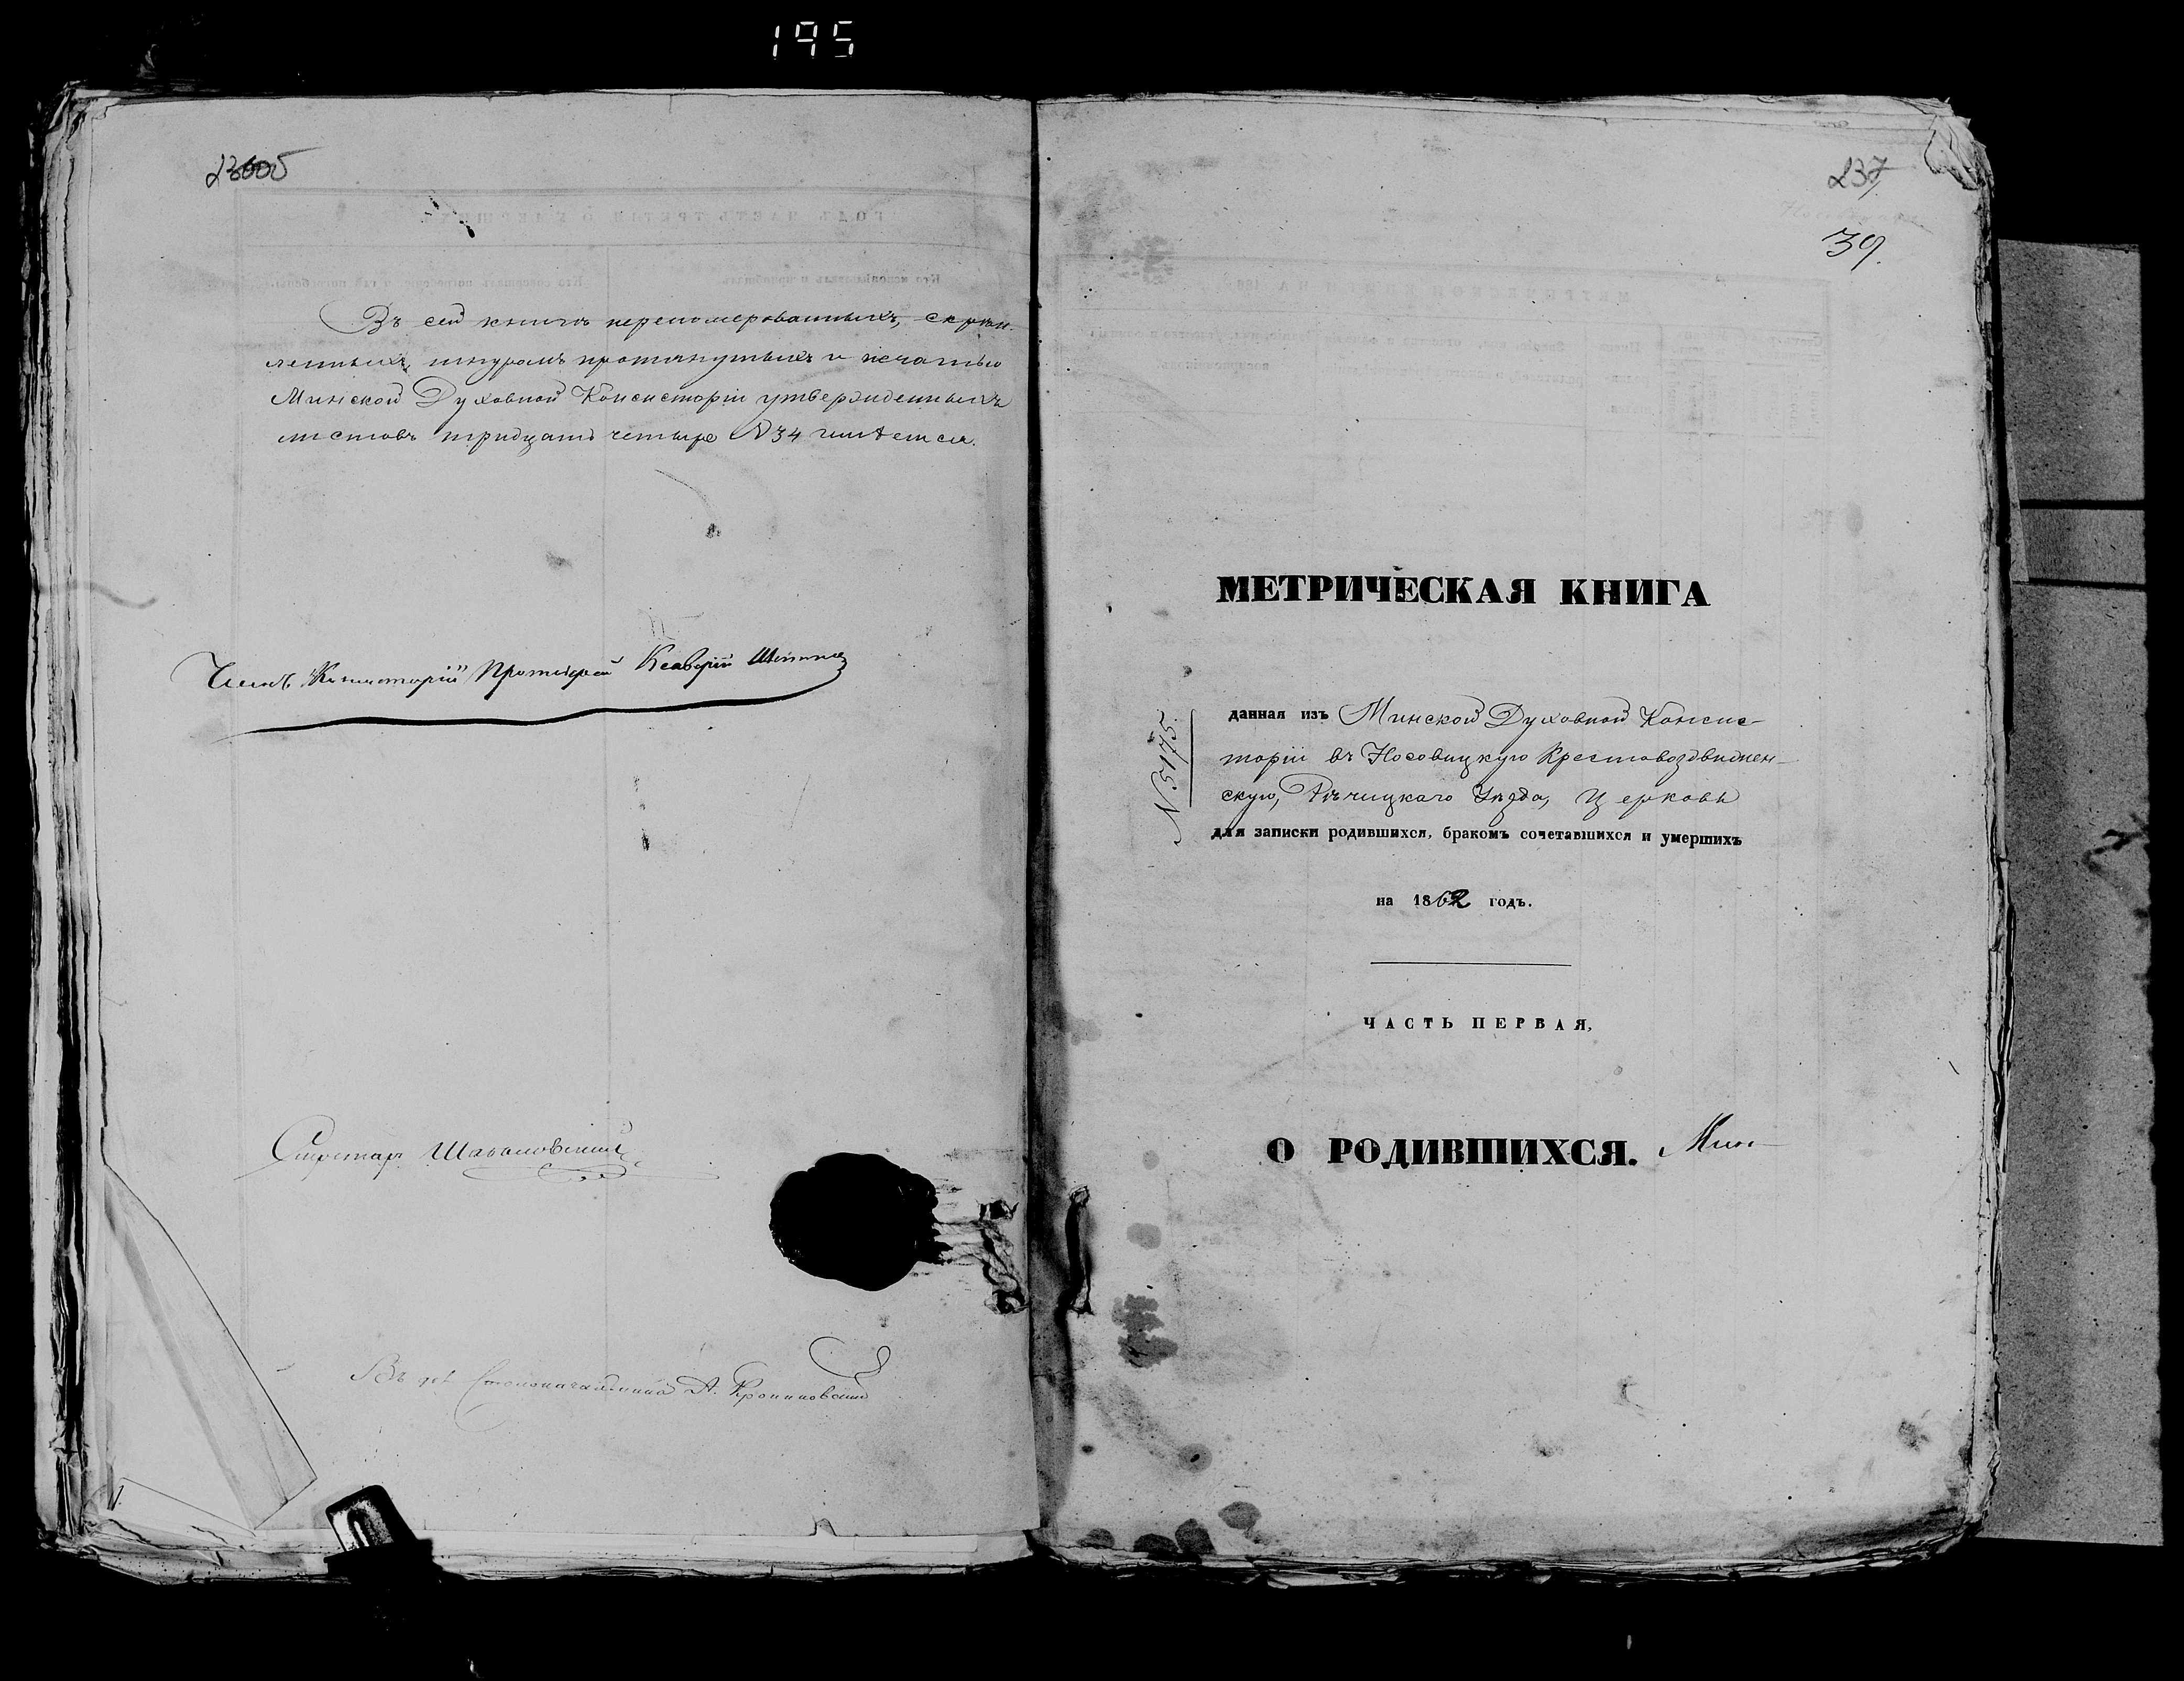 195
Въ сей книгѣ перенумерованныхъ, скрѣп-
ленныхъ, шнуромъ протянутыхъ и печатью
Минской Духовной Консисторіи утвержденныхъ
листовъ тридцать четыре № 34 имѣется.
Членъ Консисторіи Протоіерей Ксаверій
Секретарь
Столоначальника А.
237
39.
МЕТРИЧЕСКАЯ КНИГА
№ 5175.
данная изъ Минской Духовной Консис-
торіи въ Носовицкую Крестовоздвижен-
скую, Рѣчицкаго Уѣзда, Церковь
для записки родившихся, бракомъ сочетавшихся и умершихъ
на 1862 годъ.
ЧАСТЬ ПЕРВАЯ,
О РОДИВШИХСЯ. Мин-